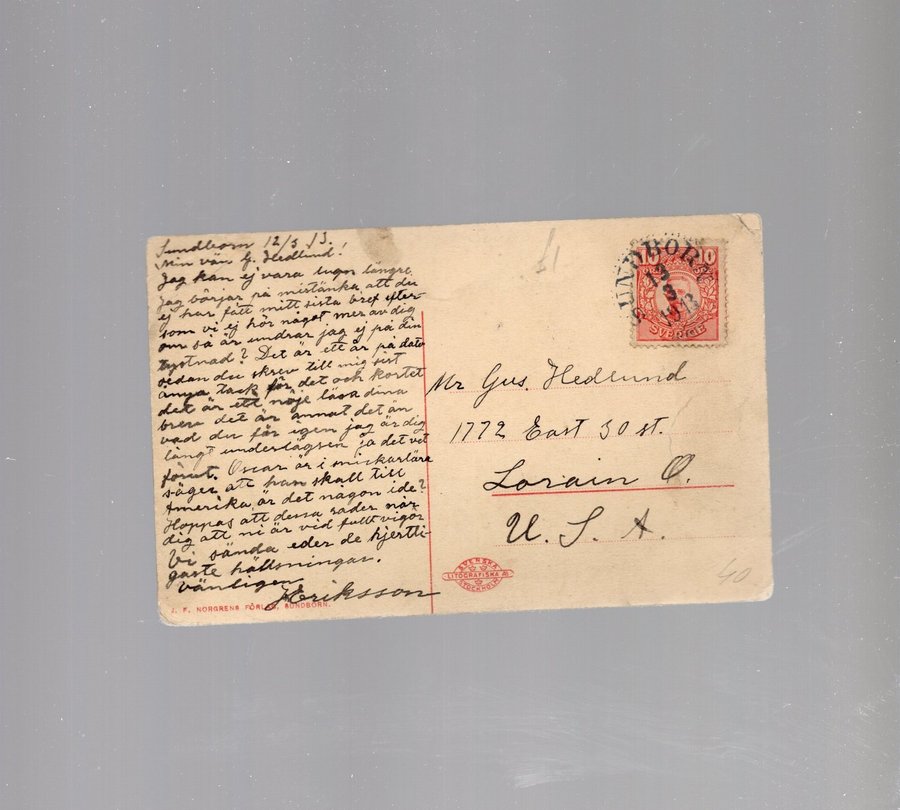 Sundborn 12/3 13.
Min vän G. Hedlund!
Jag kan ej vara lugn längre
jag börjar på mistänka att du
ej har fått mitt sista bref efter-
som vi ej hör något mer av dig
om så är undrar jag ej på din
tystnad? Det är ett år på dato
sedan du skrev till mig sist
anya tack för det och kortet
det är ett nöje läsa dina
brev det är annat det än
vad du får igen jag är dig
långt underlägsen ja det vet
förut. Oscar är i
säger att han skall till
Amerika är det någon ide?
Hoppas att dessa rader når
dig att ni är vid fullt vigör
Vi sända eder de hjertli-
gaste hällsningar.
vänligen
Eriksson
J. F. NORGRENS FÖRLAG, SUNDBORN.
SUNDBORN
13
3
1913
10
SVERIGE
Mr Gus. Hedlund
1772 East 30 st.
Lorain O.
U. S. A.
SVENSKA
LITOGRAFISKA AB
STOCKHOLM
40